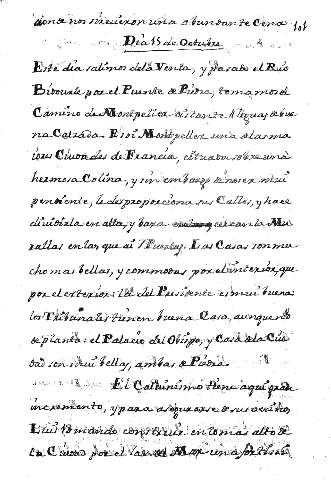 donde nos sirvieron una abundante Cena 101
Dia 15 de Octubre
Este dia salimos dela Venta, y pasado el Rio
Bidourle por el Puente de Piedra, tomamos el
Camino de Montpeller distante leguas de bue
na Calzada. Es Montpeller una delas ma
iores Ciudades de Francia, situada sobre una
hermosa Colina, y sin embargo de no ser mui
pendiente, le desproporciona sus Calles, y hace
dividirla en alta, y baxa cercanla Mu
rallas en las que ai Puertas. Las Casas son mu
cho mas bellas, y commodas por el interior, que
por el exterior: la del Presidente es mui buena:
los Tribunales tienen buena Casa, aunque no
de planta: el Palacio del Obispo, y Casa de la Ciu
dad son mui bellas, ambas de Piedra.
El Calvinismo tiene aqui grande
incremento, y para asegurarse de sus
Luis mando construir en lo mas alto de
la Ciudad por el lado del Mar una